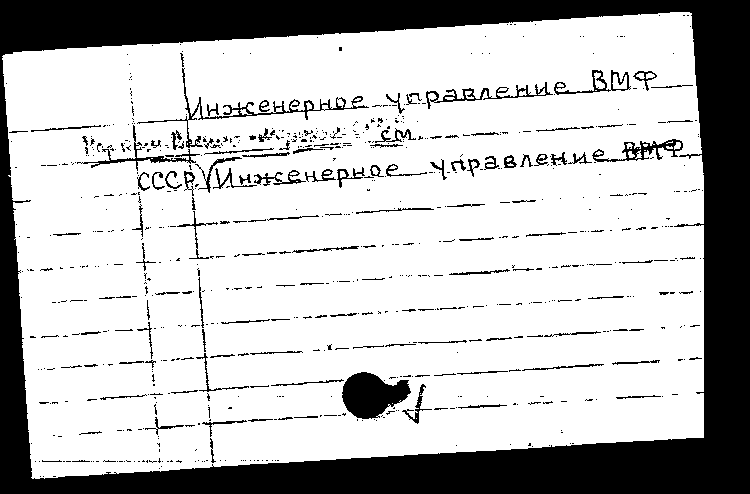 Инженерное управление ВМФ
см.
СССР. Инженерное управление ВМФ.